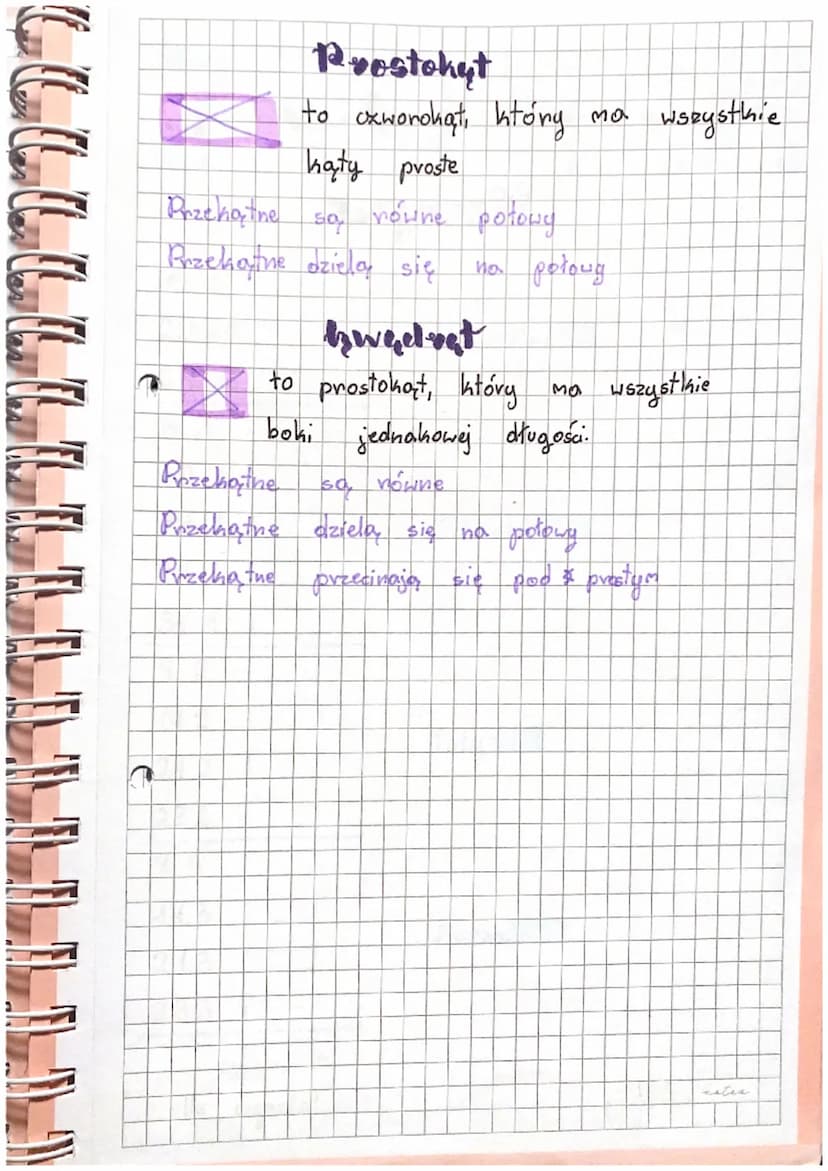 Prostokąt
to czworokąt, który ma wszystkie
kąty proste
Przekątne są równe połowy
Przekątne dzielą się na połowy
kwadrat
to prostokąt, który ma wszystkie
boki jednakowej długości.
Przekątne są równe
Przekątne dzielą się na połowy
Przekątne przecinają się pod ∢ prostym
notes